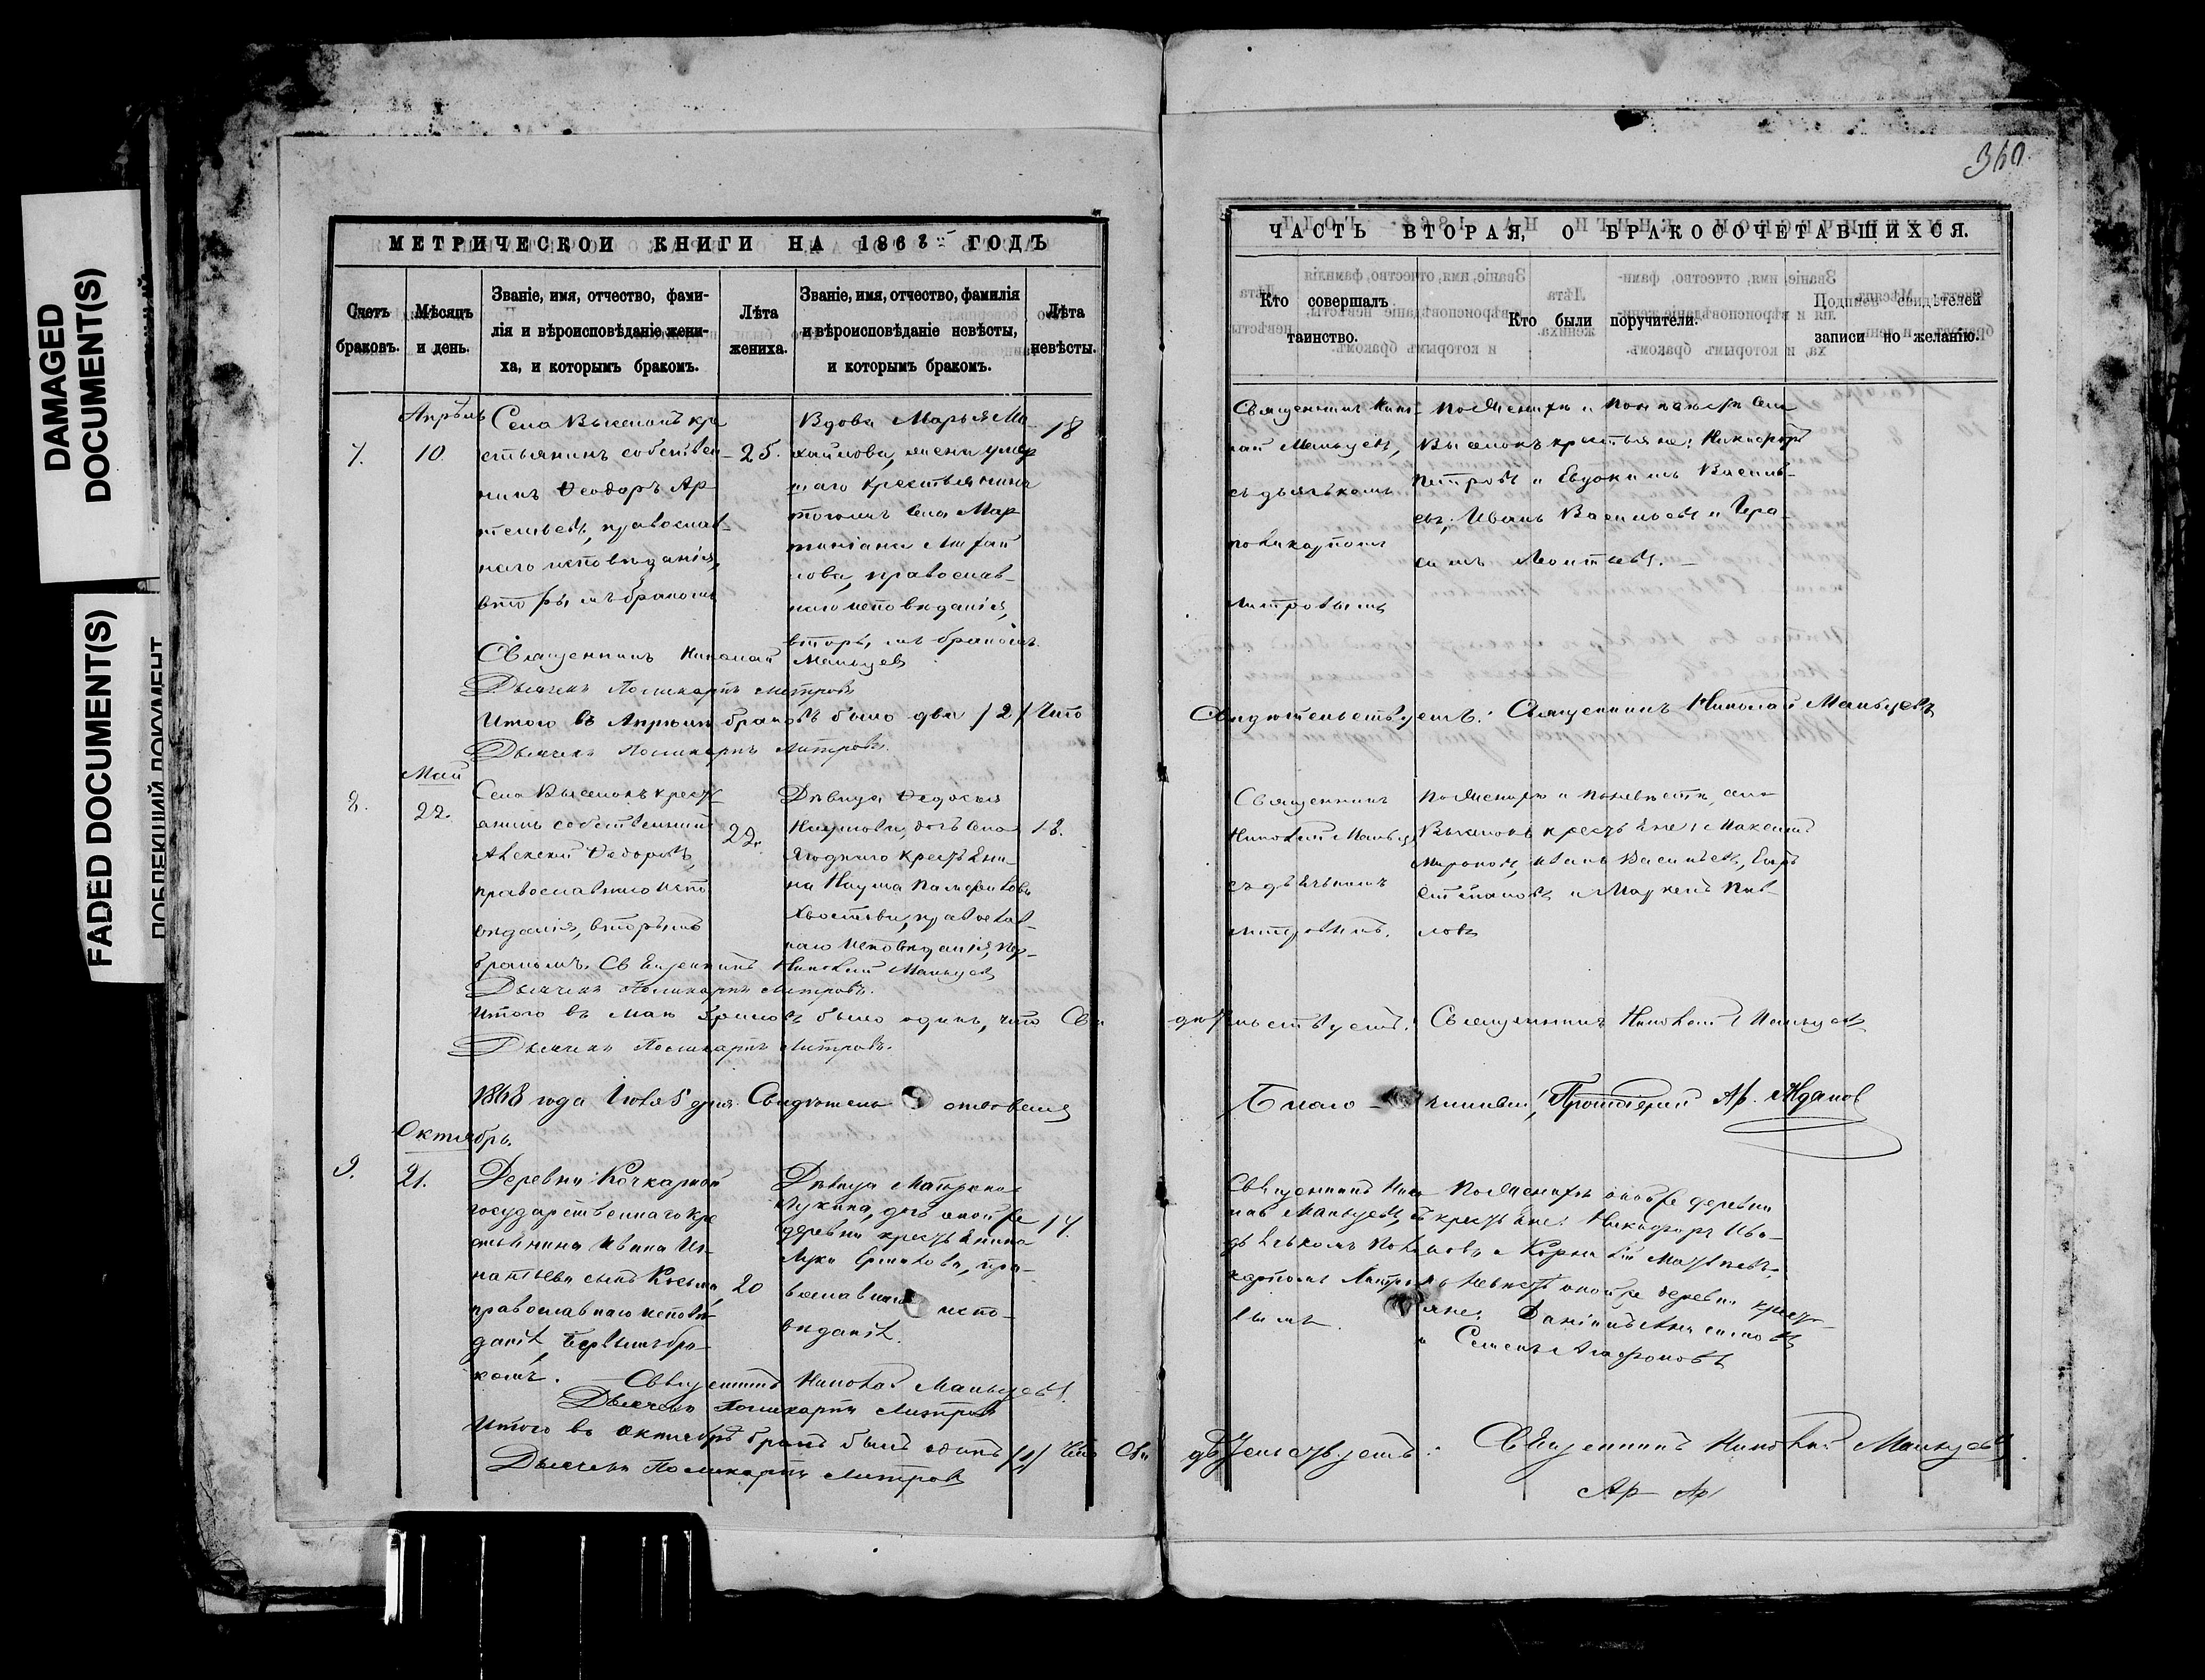 DAMAGED
DOCUMENT(S)
FADED DOCUMENT(S)
340.
МЕТРИЧЕСКОЙ КНИГИ НА 1868й ГОДЪ
Счетъ
браковъ.
Мѣсяцъ
и день.
Званіе, имя, отчество, фами-
лія и вѣроисповѣданіе жени-
ха, и которымъ бракомъ.
Лѣта
жениха.
Званіе, имя, отчество, фамилія
и вѣроисповѣданіе невѣсты,
и которымъ бракомъ.
Лѣта
невѣсты.
7.
Апрѣль
10.
Села Выселокъ кре
стьянинъ собствен-
никъ Ѳеодоръ Ар-
темьевъ, православ-
наго исповѣданія,
вторымъ бракомъ
25.
Вдова Марья Ми
хайлова, жена умер
шаго крестьянина
тогожъ села Мар
православ-
наго исповѣданія,
вторымъ бракомъ.
18
Священникъ Николай Мальцевъ
Дьячекъ Поликарпъ Митровъ
Итого въ Апрѣлѣ браковъ было два /2/ Что
Дьячекъ Поликарпъ Митровъ.
8.
Май
22.
Села Выселокъ крест
янинъ собственникъ
Алексей Ѳедоровъ,
православнаго испо
вѣданія, вторымъ
бракомъ. Священникъ Николай Мальцевъ
22.
Дѣвица Ѳедосья
Наумова, дочь села
Ягоднаго крестьяни-
на Наума Памфилова
Хвостова, православ-
наго исповѣданія, пер-
18.
Дьячекъ Поликарпъ Митровъ.
Итого въ Маѣ браковъ было одинъ, что Сви
Дьячекъ Поликарпъ Митровъ.
1868 года Іюля 5 дня Свидѣтельствовалъ
Октябрь.
9.
21.
Деревни Кочкарной
государственнаго кре
стьянина Ивана Иг-
натьева сынъ Косьма,
православнаго исповѣ-
данія, первымъ бра-
комъ.
20
Дѣвица Матрена
Лукина, дчь оной же
деревни крестьянина
Луки Ермилова, пра-
вославнаго испо-
вѣданія.
17.
Священникъ Николай Мальцевъ.
Дьячекъ Поликарпъ Митровъ
Итого въ Октябрѣ бракъ былъ одинъ /1/ Что Сви
Дьячекъ Поликарпъ Митровъ
ЧАСТЬ ВТОРАЯ, О БРАКОСОЧЕТАВШИХСЯ.
Кто совершалъ
таинство.
Кто были поручители.
Подписи свидѣтелей
записи по желанію.
Священникъ Нико-
лай Мальцевъ,
съ дьячькомъ
поликарпомъ
Митровымъ
По женихѣ и по невѣстѣ Села
Выселокъ крестьяне: Никифоръ
Петровъ и Евдокимъ Василь-
евъ, Иванъ Васильевъ и Гера-
симъ Леонтьевъ.
Свидѣтельствуетъ: Священникъ Николай Мальцевъ
Священникъ
Николай Мальцевъ
съ дьячькомъ
Митровымъ.
По женихѣ и по невѣстѣ, села
Выселокъ крестьяне: Максимъ
Мироновъ, Иванъ Васильевъ, Егоръ
Степановъ и Маркелъ Пав-
ловъ
дѣтельствуетъ: Священникъ Николай Мальцевъ
Благочинный, Протоіерей Ар. Ждановъ
Священникъ Нико
лай Мальцевъ, съ
дьячькомъ Поли
карпомъ Митро
вымъ.
По женихѣ оной же деревни
крестьяне: Никифоръ Ива-
новъ и Корнилій Матвѣевъ;
по невѣстѣ оной же деревни крест-
яне: Даніилъ
и Семенъ Агафоновъ
дѣтельствуетъ: Священникъ Николай Мальцевъ.